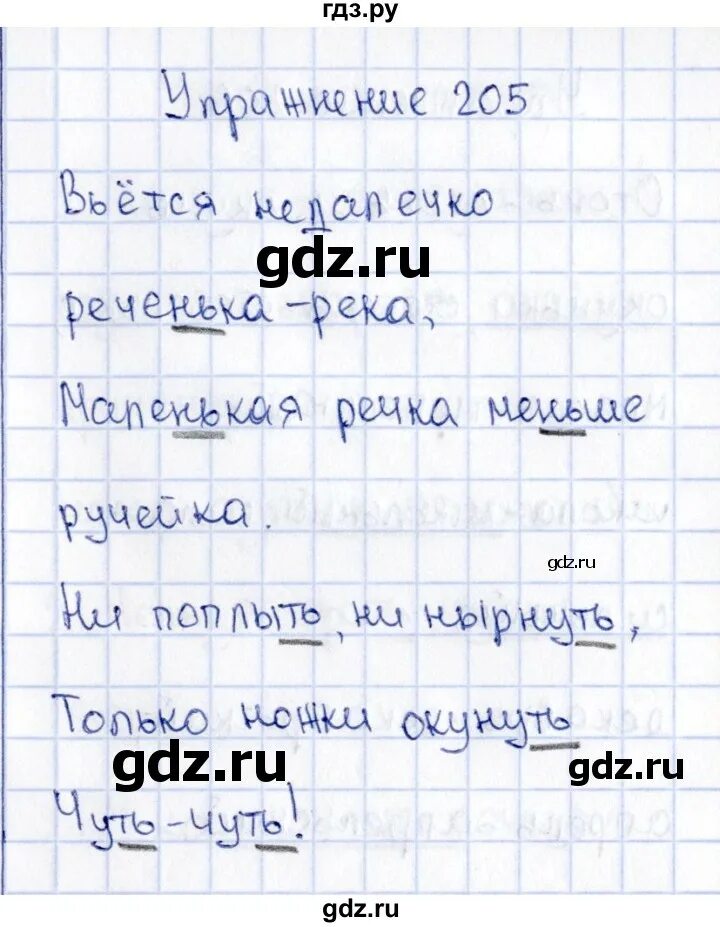 гдз.ру
Упражнение 205
Вьётся недалечко
gdz.ru
реченька-река,
Маленькая речка меньше
ручейка.
gdz.ru
Ни поплыть, ни нырнуть,
Только ножки окунуть
gdz.ru
gdz.ru
Чуть-чуть!
gdz.ru